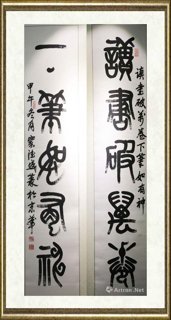 讀書破萬卷
讀書破萬卷下筆如有神
下筆如有神
甲午冬月 篆於京華
Artron.Net